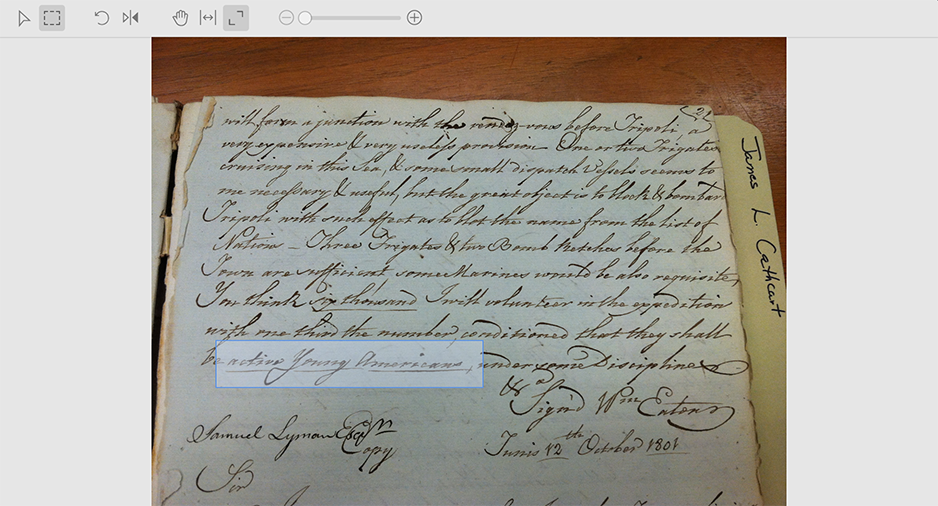 22
with form a junction with the rendezvous before Tripoli, a
very expensive & very useless provision — One or two Frigates
cruising in this Sea, & some small dispatch Vessels seems to
me necessary & useful, but the great object is to block & bombard
Tripoli with such effect as to blot the name from the list of
Nations — Three Frigates & two Bomb Ketches before the
Town are sufficient some Marines would be also requisite,
You think six thousand I will volunteer in the expedition
with one third the number, conditioned that they shall
be active Young Americans, under some Discipline
&c
Sign'd Wm Eaton
Samuel Lyman Esqr
Copy
Tunis 12th October 1801
Sir
James L. Cathcart